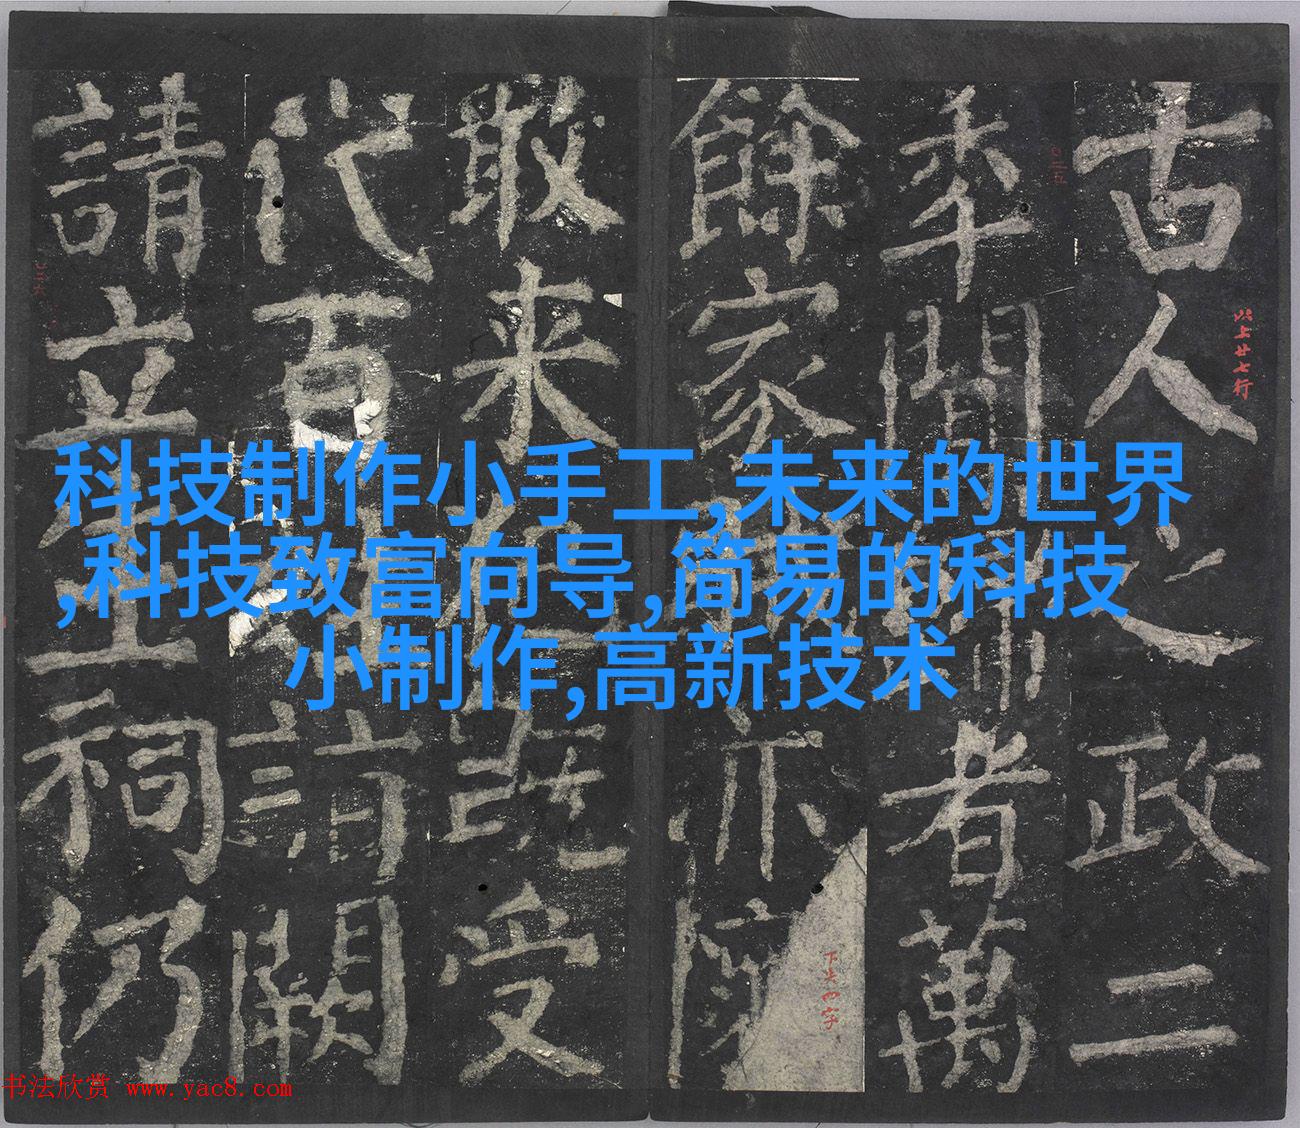 科技制作小手工,未来的世界
,科技致富向导,简易的科技
小制作,高新技术
古人之政二
秊閒歸者萬
餘家賊亦懷
敢来犯既受
代百姓詣闕
請立生祠仍
以上廿七行
书法欣赏 www.yac8.com